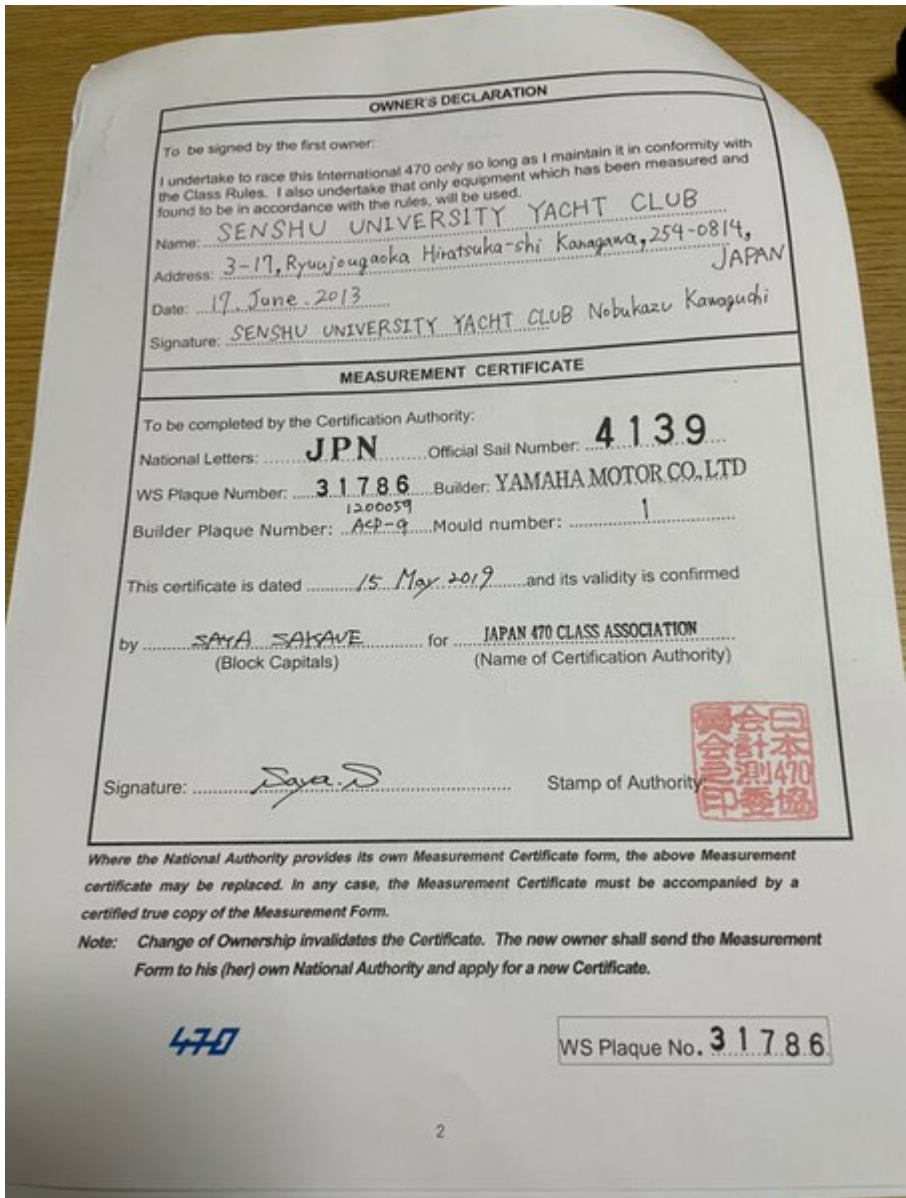 OWNER'S DECLARATION
To be signed by the first owner:
I undertake to race this International 470 only so long as I maintain it in conformity with
the Class Rules. I also undertake that only equipment which has been measured and
found to be in accordance with the rules, will be used.
Name: SENSHU UNIVERSITY YACHT CLUB
Address: 3-17, Ryuujougaoka Hiratsuka-shi Kanagawa, 254-0814,
JAPAN
Date: 17. June. 2013
Signature: SENSHU UNIVERSITY YACHT CLUB Nobukazu Kawaguchi
MEASUREMENT CERTIFICATE
To be completed by the Certification Authority:
National Letters: JPN Official Sail Number: 4139
WS Plaque Number: 31786 Builder: YAMAHA MOTOR CO., LTD
1200059
Builder Plaque Number: ACP-9 Mould number: 1
This certificate is dated 15 May 2019 and its validity is confirmed
by SAYA SAKAUE for JAPAN 470 CLASS ASSOCIATION
(Block Capitals) (Name of Certification Authority)
Signature: Saya.S Stamp of Authority:
日本470協
会計測委
員会之印
Where the National Authority provides its own Measurement Certificate form, the above Measurement
certificate may be replaced. In any case, the Measurement Certificate must be accompanied by a
certified true copy of the Measurement Form.
Note: Change of Ownership invalidates the Certificate. The new owner shall send the Measurement
Form to his (her) own National Authority and apply for a new Certificate.
470 WS Plaque No. 31786
2